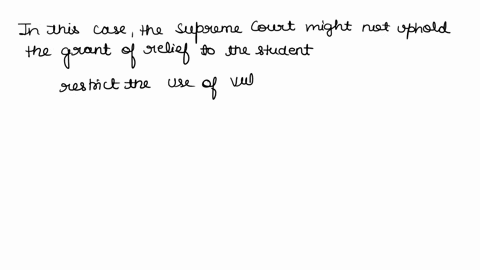 In this case, the Supreme Court might not uphold
the grant of relief to the student
restrict the use of vul